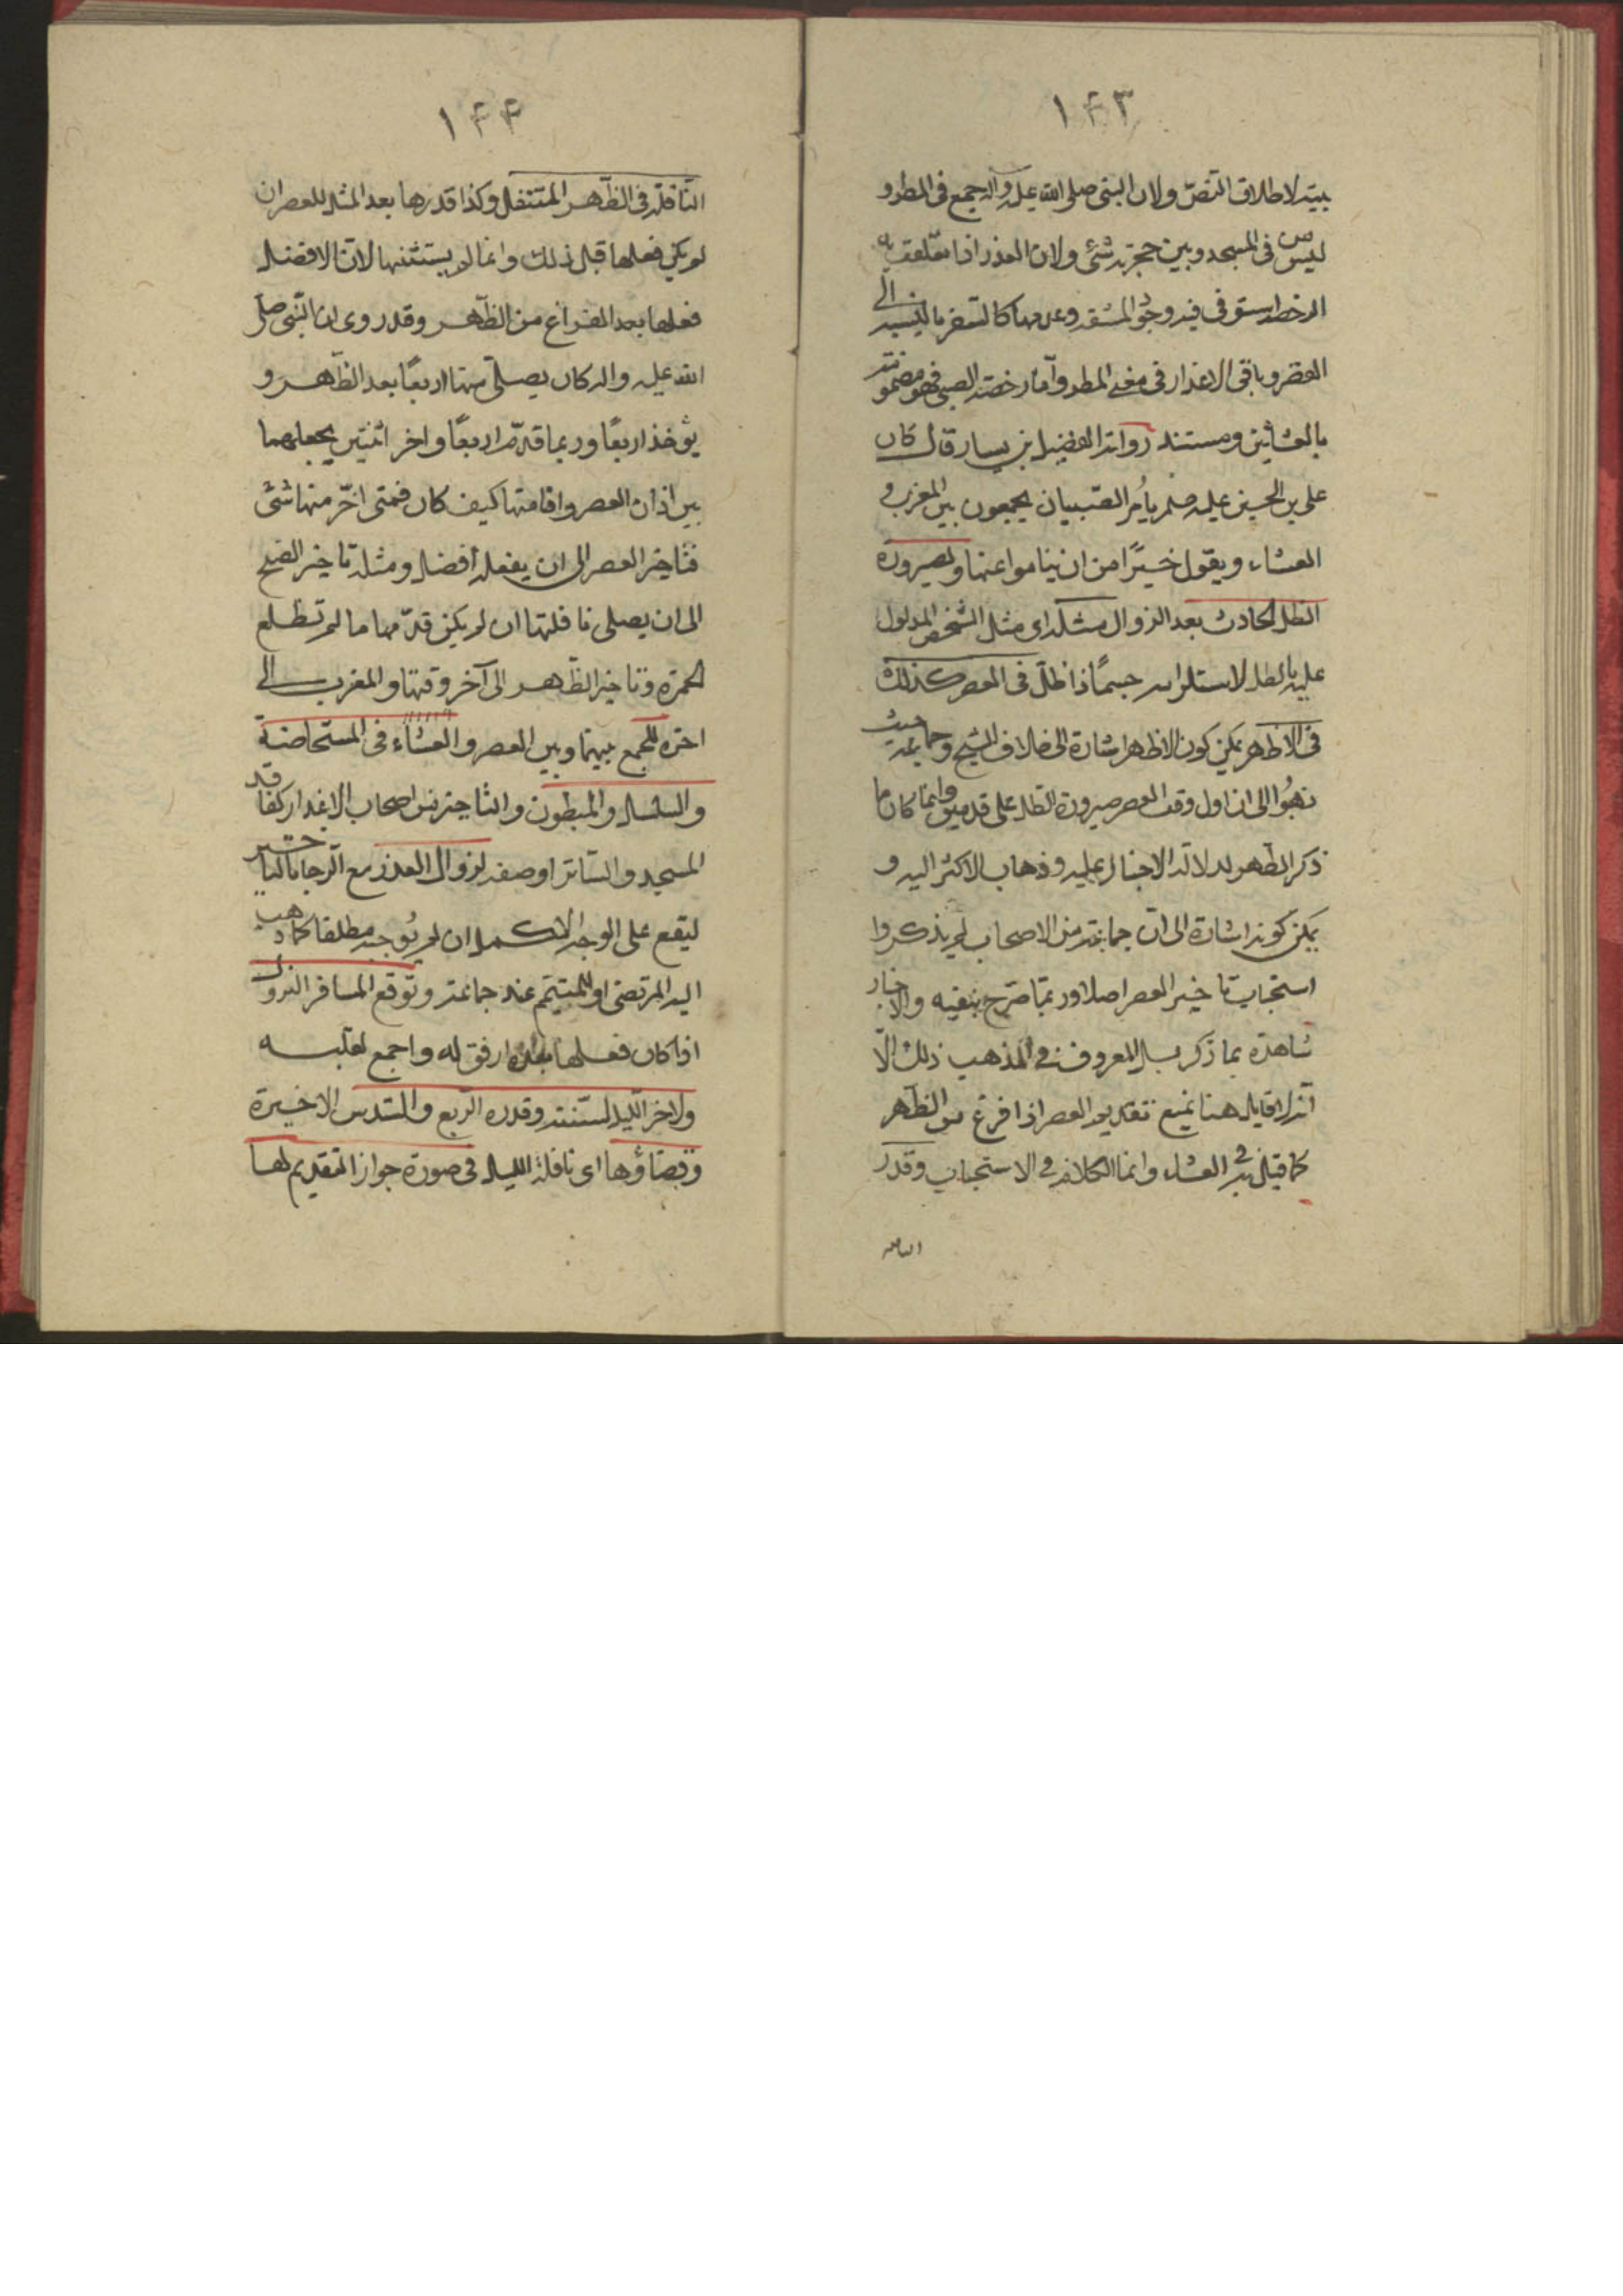 ١۴٣
بيته لاطلاق النص ولان النبى صلى الله عليه وآله جمع فى المطر و
ليس فى المسجد وبين حجرته شئ ولان العذر اذا تعلقت به
الرخصة استوى فيه وجود المشقة وعدمها كالسفر بالنسبة الى
القصر وباقى الاعذار فى معنى المطر وأما رخصة الصبى فهو
بالعشائين ومستنده رواية الفضيل بن يسار قال كان
على بن الحسين عليه يأمر الصبيان يجمعون بين المغرب و
العشاء ويقول خير من ان يناموا عنها ولصيرورة
الظل الحادث بعد الزوال مثله اى مثل الشخص المدلول
عليه بالظل لاستلزامه جسمًا ذا ظل فى العصر كذلك
فى الاظهر يمكن كون الاظهر اشارة الى خلاف الشيخ وجماعة حيث
ذهبوا الى ان اول وقت العصر صيرورة الظل على قدمين وانما كان ما
ذكر اظهر لدلالة الاخبار عليه وذهاب الاكثر اليه و
يمكن كونه اشارة الى ان جماعة من الاصحاب لم يذكروا
استحباب تاخير العصر اصلا وربما صرح بنفيه والاخبار
شاهدة بما ذكر بل المعروف فى المذهب ذلك الا
انه لا قايل هنا بمنع تقديم العصر اذا فرغ من الظهر
كما قيل به فى العشاء وانما الكلام فى الاستحباب وقدر
النافلة
١۴۴
النافلة فى الظهر المتنفل وكذا قدرها بعد المثل للعصر ان
لم يكن فعلها قبل ذلك وانما لم يستثنها لان الافضل
فعلها بعد الفراغ من الظهر وقد روى ان النبى صلى
الله عليه واله كان يصلى منها اربعًا بعد الظهر و
يؤخذ اربعًا وربما قدم اربعًا واخر اثنتين يجعلهما
بين اذان العصر واقامتها كيف كان فمتى اخر منها شئ
فتاخير العصر الى ان يفعله أفضل ومثله تاخير الصبح
الى ان يصلى نافلتها ان لم يكن قدمها ما لم تطلع
الحمرة وتاخير الظهر الى آخر وقتها والمغرب الى
اخره للجمع بينها وبين العصر والعشاء فى المستحاضة
والسلس والمبطون والتاخير من اصحاب الاعذار كفاقد
المسجد والساتر او صفه لزوال العذر مع الرجا بالتاخير
ليقع على الوجه الاكمل ان لم نوجبه مطلقا كما ذهب
اليه المرتضى او للمتيمم عند جماعة وتوقع المسافر النزول
اذا كان فعلها بعده ارفق له واجمع لقلبه
ولاخر الليل لسنته وقدره الربع والسدس الاخيرة
وقضاؤها اى نافلة الليل فى صورة جواز التقديم لها